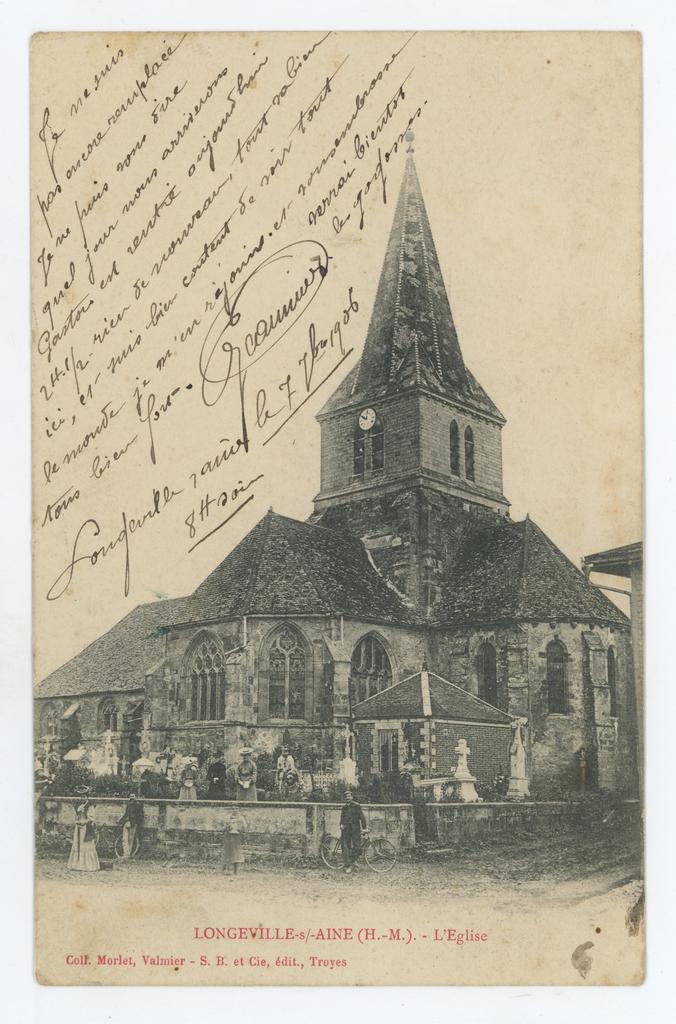 Je ne suis
pas encore remplacé
Je ne puis vous dire
quel jour nous arriverons
Gaston est rentré aujourd'hui
24 1/2 rien de nouveau, tout va bien
ici, et suis bien content de voir tout
le monde je m'en réjouis. et vous embrasse
tous bien fort.
verrai bientôt
les gosses.
Longeville s/aine le 7 7bre 1906
8H soir
LONGEVILLE-s/-AINE (H.-M.). - L'Eglise
Coll. Morlet, Valmier - S. B. et Cie, édit., Troyes